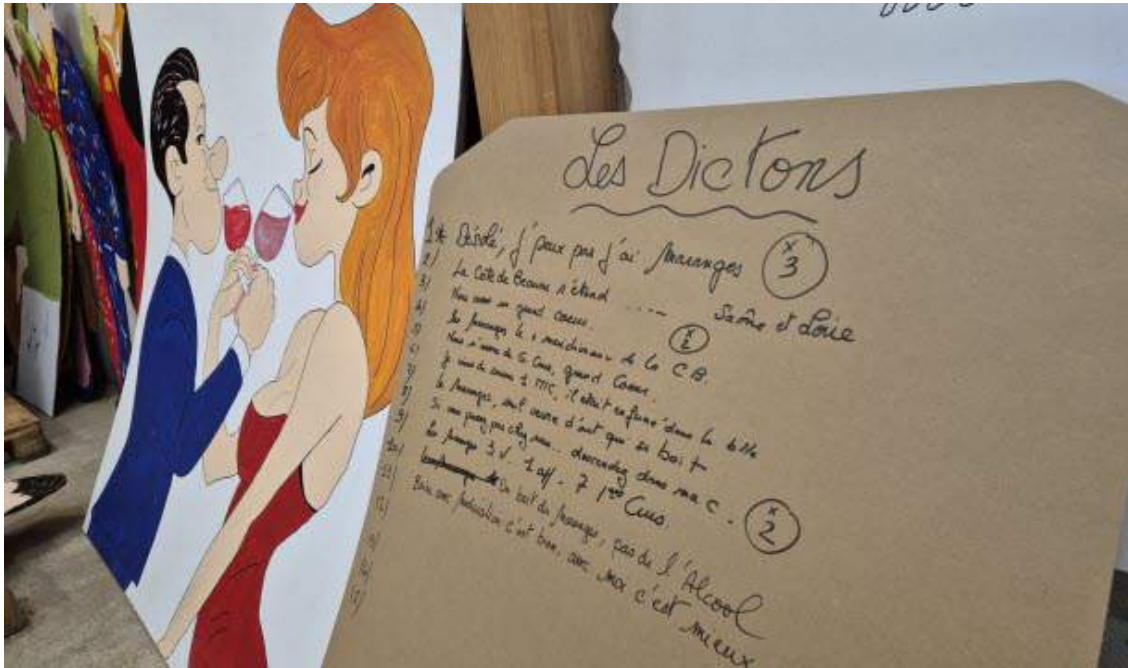 Les Dictons
1* Désolé, j'peux pas j'ai Maranges x 3
2) La Côte de Beaune s'étend .... Saône et Loire
3) Nous avons un grand coeur.
4) les Maranges le + méridionaux de la C.B. x 2
5) Nous n'avons de G. Crus, grand Coeur.
6) je viens de 1 MC, il était enfumé dans la blle
7) le Maranges, seul oeuvre d'art qui se boit
8) Si vous descendez dans ma C. x 2
9) Les Maranges 3 V. 1 aff. 7 1ers Crus.
10) On boit du Maranges, pas de l'Alcool
11) Boire avec modération c'est bien, avec moi c'est mieux
12)